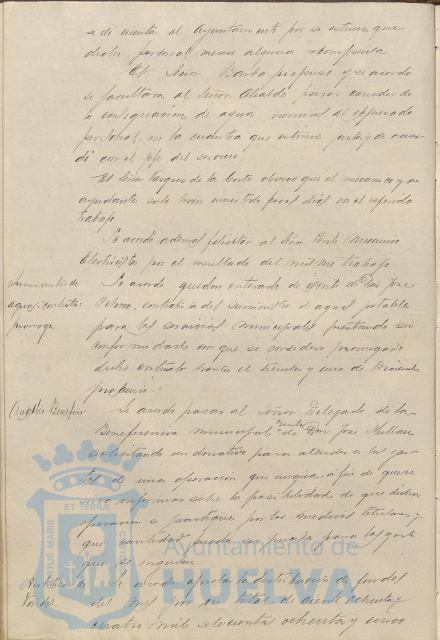 se dé cuenta al Ayuntamiento por si estima que
dicho personal merece alguna recompensa
El Señor Barba propuso y se acordó
se facultara al Señor Alcalde para conceder de
la consignación de agua
personal en la cuantía que estime justa y de acuer
do con el jefe del servicio
El Señor Vazquez de la Corte observó que el mecánico y su
ayudante solo han invertido pocos días en el referido
trabajo
Se acordó además felicitar al Señor
Electricista por el resultado del mismo trabajo
Suministro de
aguas: contrato:
prorroga
Se acordó quedar enterado de Don José
contratista del suministro de agua potable
para los servicios municipales prestando su
conformidad con que se considere prorrogado
dicho contrato hasta el treinta y uno de Diciembre
próximo.
Auxilio Benefico
Se acordó pasar al Señor Delegado de la
Beneficencia municipal escrito de Don José
solicitando un donativo para atender a los gas
tos de una operación quirurgica a fin de que se
sirva informar sobre la posibilidad de que dicha
operación se practique por los medicos titulares y
que cantidad pueda ser precisa para los gastos
que se originen
fondos
Se acordó aprobar la distribución de fondos
del mes por un total de ciento ochenta y
cuatro mil setecientas ochenta y cinco
PORTUS MARIS ET TERRAE CUSTODIA
Ayuntamiento de
HUELVA